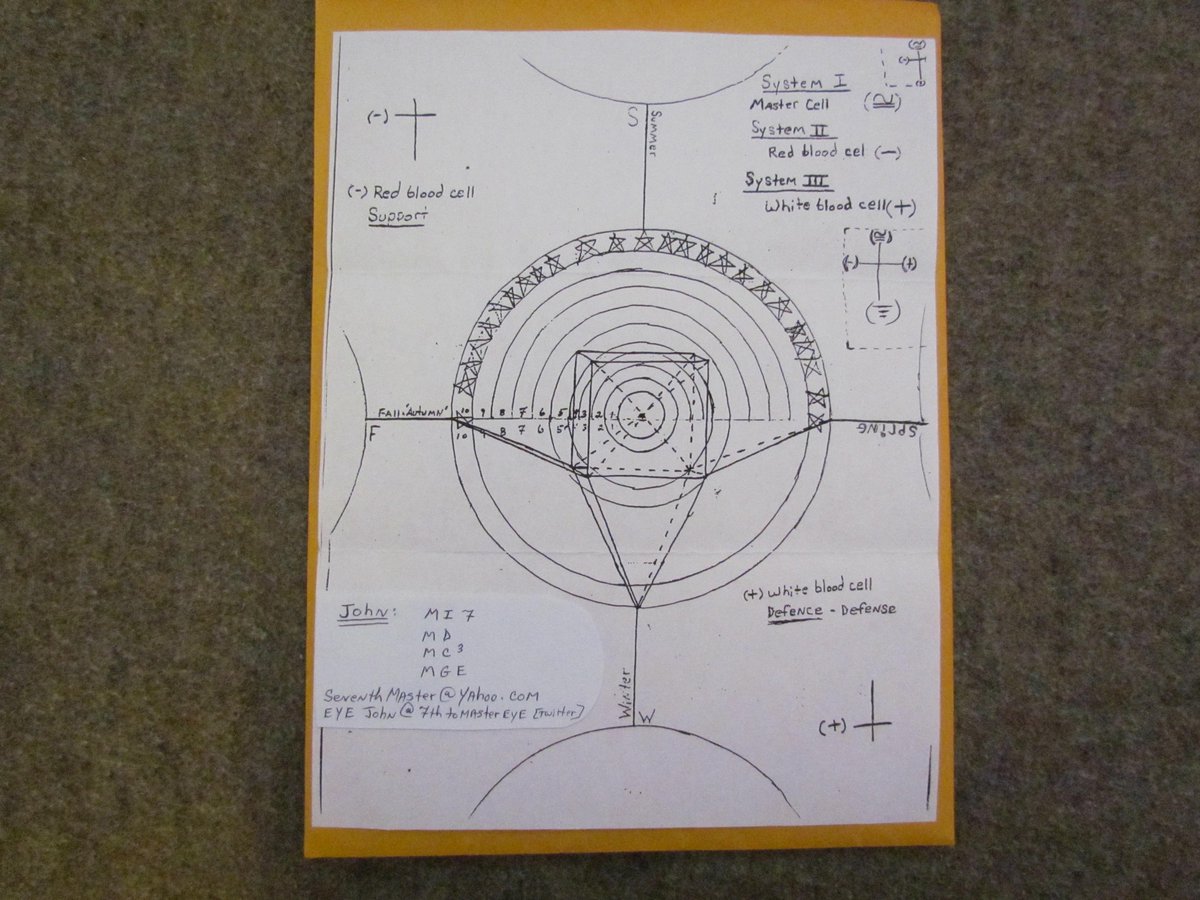 System I
Master Cell (≅)
System II
Red blood cel (-)
System III
White blood cell (+)
(≅)
(-) (+)
(-)
(-) Red blood cell
Support
S
Summer
Fall-'Autumn'
F
10 9 8 7 6 5 4 3 2 1
10 9 8 7 6 5 4 3 2
Spring
(+) White blood cell
Defence - Defense
John: MI7
MD
MC³
MGE
SeventhMaster@Yahoo.com
EYE John@7thtoMasterEYE [Twitter]
Winter
W
(+)